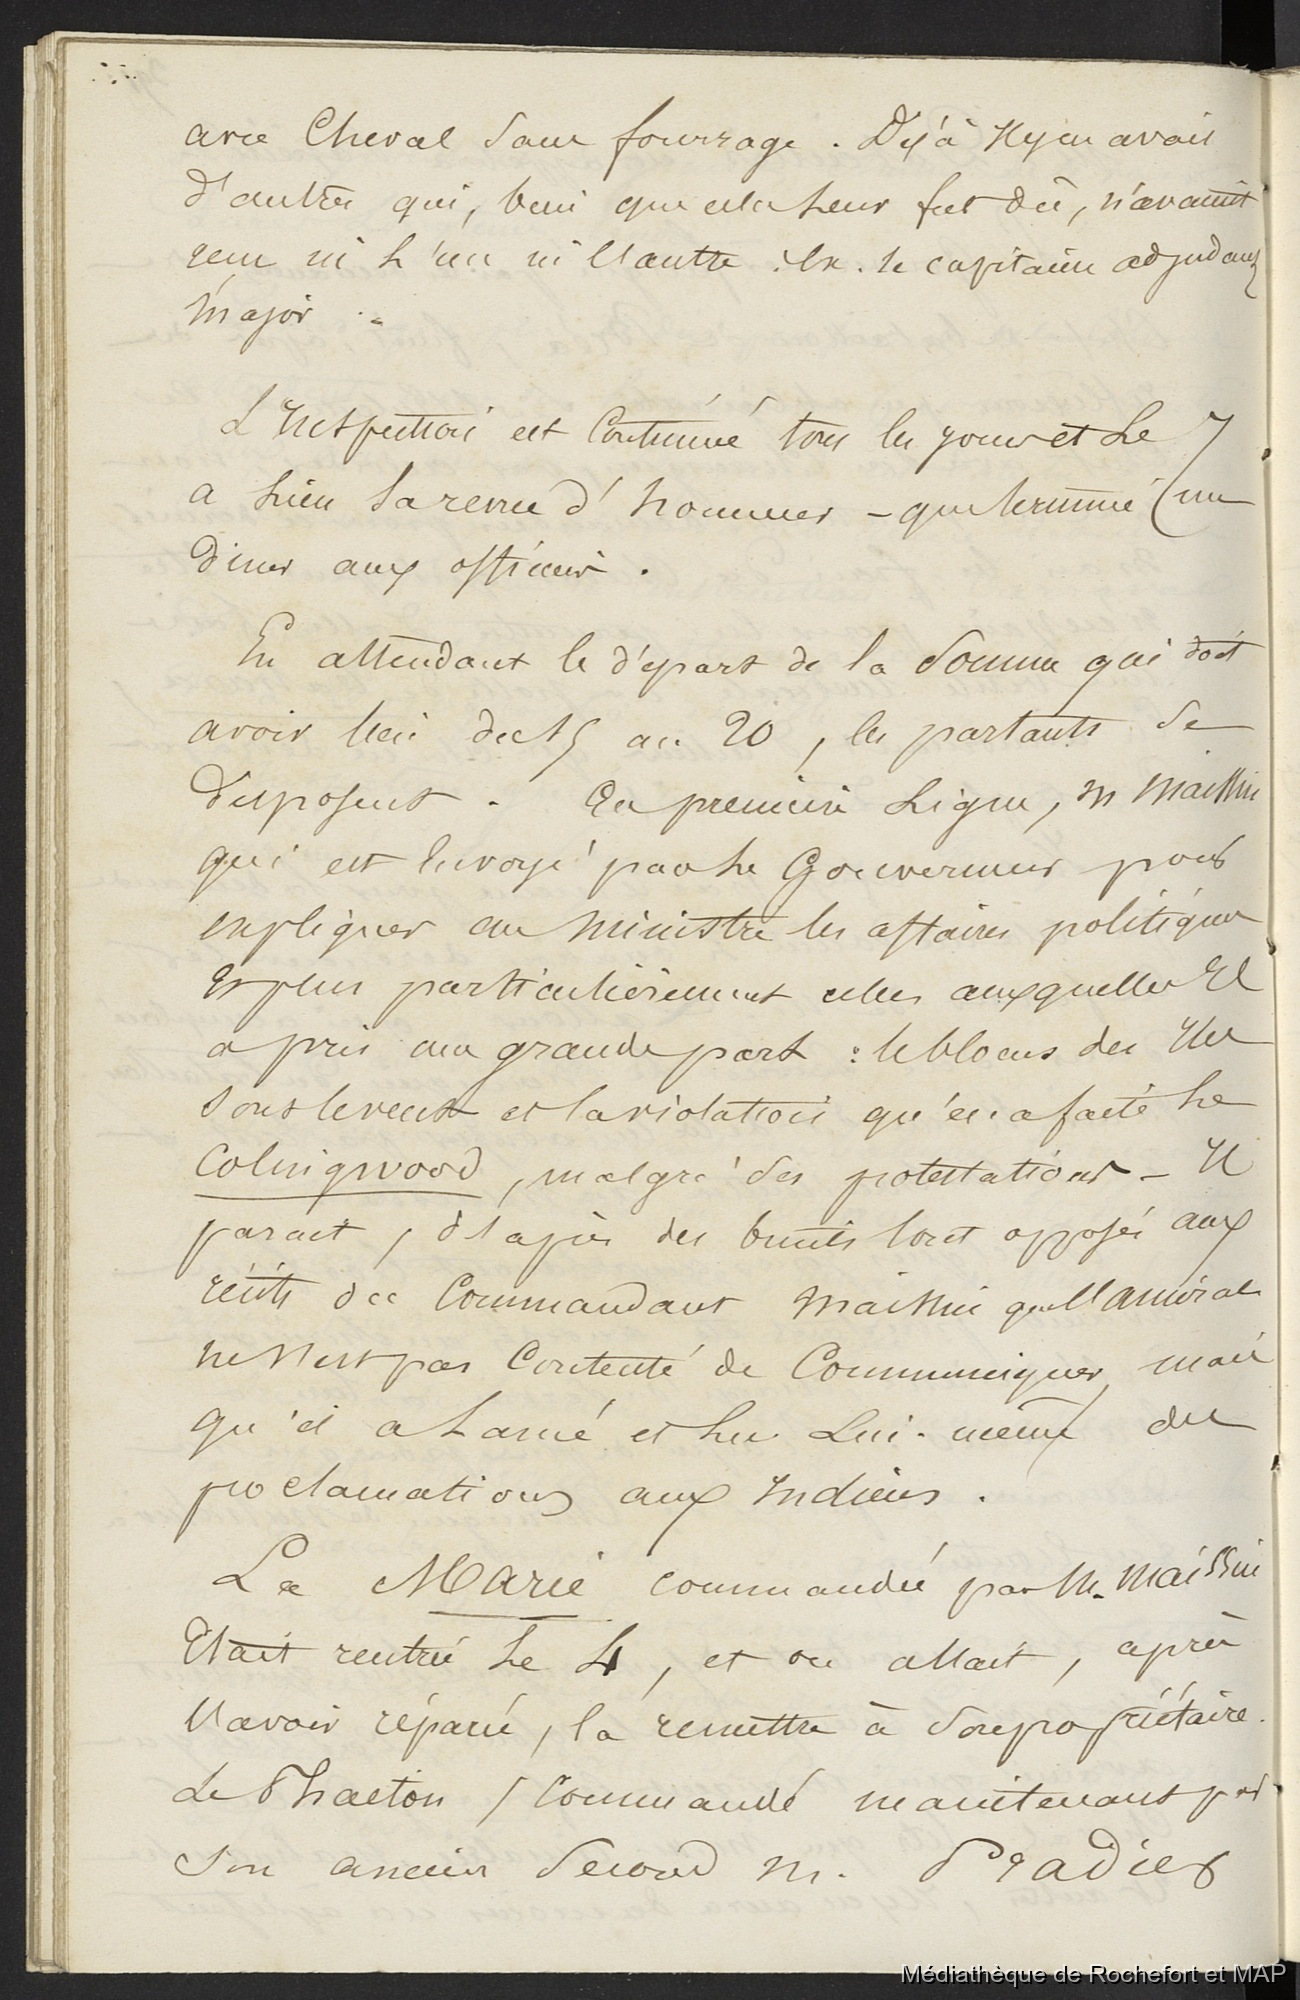 avec Cheval sans fourrage. Déjà Il y en avait
d'autres qui, bien que cela leur fut dû, n'avaient
reçu ni l'un ni l'autre : Ex. le capitaine adjudant
Major.
L'Inspection est Continuée tous les jours et le 7
a lieu la revue d'honneur - que termine un
diner aux officiers.
En attendant le départ de la Somme qui doit
avoir lieu du 15 au 20, les partants se
disposent. En première ligne, M Maissin
qui est envoyé par le Gouverneur pour
expliquer au Ministre les affaires politiques
Et plus particulièrement celles auxquelles Il
a pris une grande part : le blocus des Iles
sous le vent et la violation qu'en a faite le
Colingwood, malgré ses protestations - Il
parait, d'après des bruits tout opposés aux
récits du Commandant Maissin que l'amiral
ne s'est pas Contenté de Communiquer, mais
qu'il a lancé et lu Lui-même des
proclamations aux Indiens.
La Marie commandée par M. Maissin
Etait rentrée le 4, et on allait, après
l'avoir réparée, la remettre à son propriétaire.
Le Phaeton, Commandé maintenant par
son ancien Second M. Pradier
Médiathèque de Rochefort et MAP